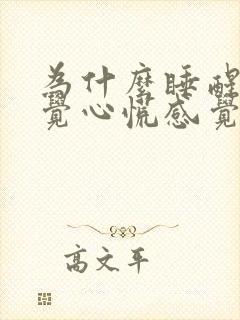 為什麼睡醒
覺心慌感覺
高文平